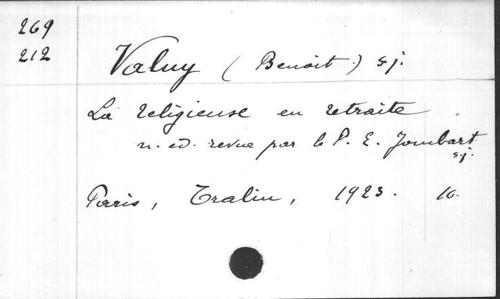 269
212
Valuy (Benoit) s.j.
La religieuse en retraite
n. ed. revue par le P. E. Jombart
s.j.
Paris, Tralin, 1923. 16.